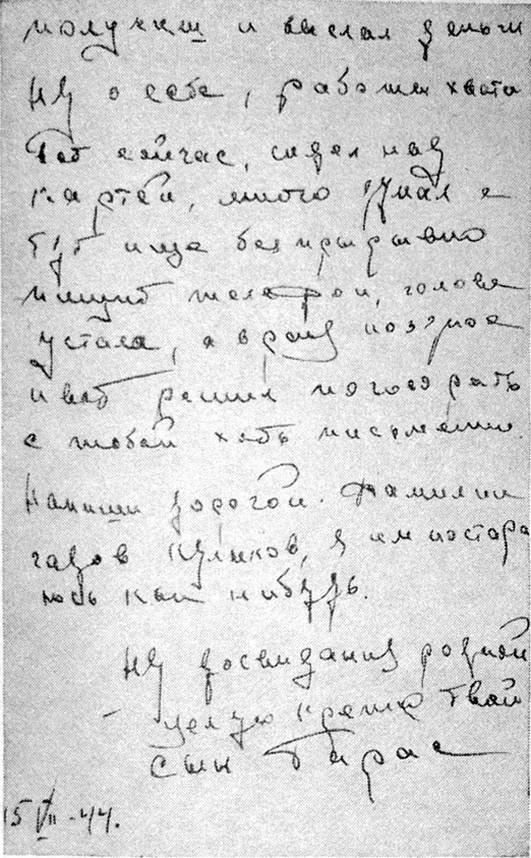 получиш и выслал деньги
Ну о себе, работы хвата
Вот сейчас, сидел над
картой, много думал а
тут ище безпрерывно
пищит телефон, голова
устала, а время позднее
и вот решил поговорить
с тобой хоть письменно
Напиши дорогой. Фамилии
гадов Куликов, я им постара
юсь как нибудь.
Ну досвидания родной
целую крепко твой
сын Тарас
15 VII-44.